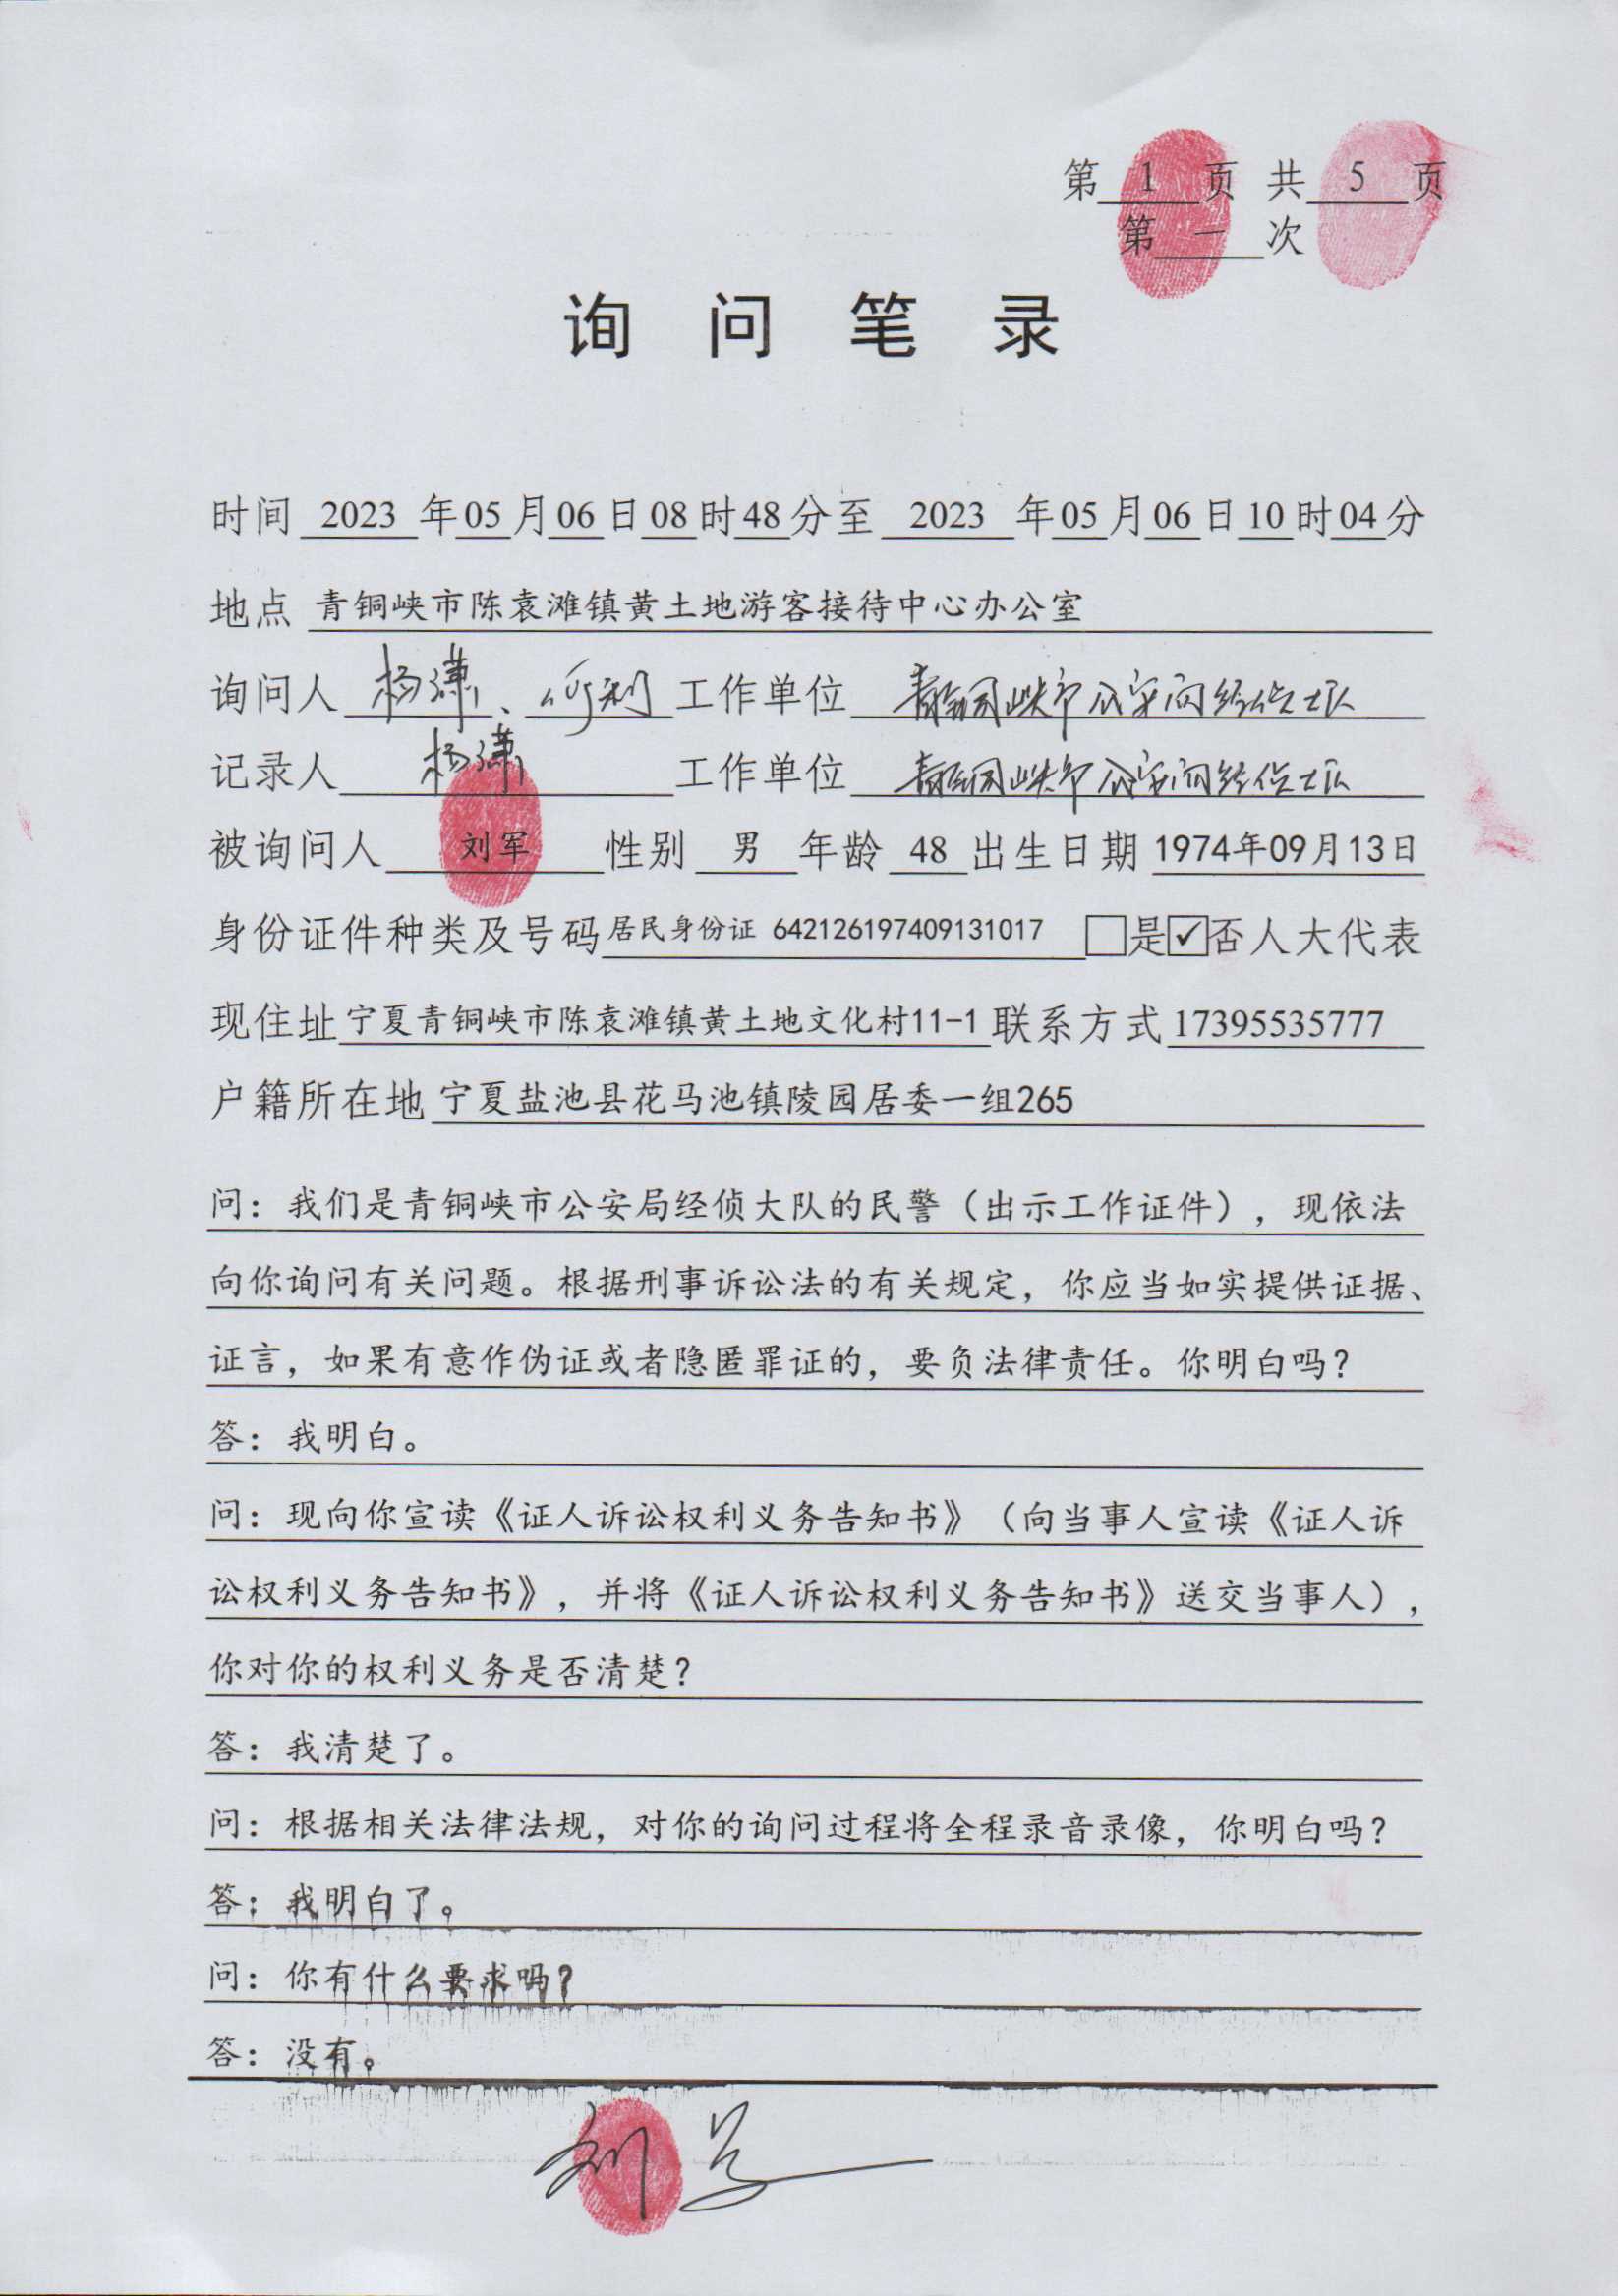 第 1 页 共 5 页
第 一 次
询 问 笔 录
时间 2023 年 05 月 06 日 08 时 48 分至 2023 年 05 月 06 日 10 时 04 分
地点 青铜峡市陈袁滩镇黄土地游客接待中心办公室
询问人 杨潇、 工作单位 青铜峡市公安局经侦大队
记录人 杨潇 工作单位 青铜峡市公安局经侦大队
被询问人 刘军 性别 男 年龄 48 出生日期 1974年09月13日
身份证件种类及号码 居民身份证 642126197409131017 □是☑否人大代表
现住址 宁夏青铜峡市陈袁滩镇黄土地文化村11-1 联系方式 17395535777
户籍所在地 宁夏盐池县花马池镇陵园居委一组265
问：我们是青铜峡市公安局经侦大队的民警（出示工作证件），现依法
向你询问有关问题。根据刑事诉讼法的有关规定，你应当如实提供证据、
证言，如果有意作伪证或者隐匿罪证的，要负法律责任。你明白吗？
答：我明白。
问：现向你宣读《证人诉讼权利义务告知书》（向当事人宣读《证人诉
讼权利义务告知书》，并将《证人诉讼权利义务告知书》送交当事人），
你对你的权利义务是否清楚？
答：我清楚了。
问：根据相关法律法规，对你的询问过程将全程录音录像，你明白吗？
答：我明白了。
问：你有什么要求吗？
答：没有。
刘军